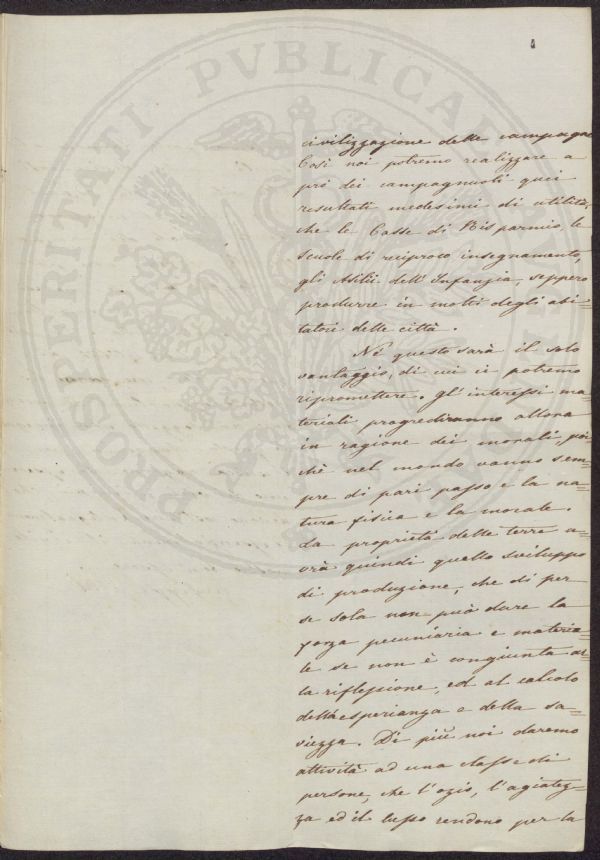 PROSPERITATI PVBLICAE
civilizzazione delle campagne
Così noi potremo realizzare a
prò dei campagnuoli quei
resultati medesimi di utilità,
che le Casse di Risparmio, le
scuole di reciproco insegnamento,
gli Asili dell'Infanzia, seppero
produrre in molti degli abi=
tatori delle città.
Nè questo sarà il solo
vantaggio, di cui ci potremo
ripromettere. Gl'interessi ma=
teriali progrediranno allora
in ragione dei morali, poi
chè nel mondo vanno sem=
pre di pari passo e la na=
tura fisica e la morale.
La proprietà delle terre a=
vrà quindi quello sviluppo
di produzione, che di per
se sola non può dare la
forza pecuniaria e materia=
le se non è congiunta al
la riflessione, ed al calcolo
della esperienza e della sa=
viezza. Di più noi daremo
attività ad una classe di
persone, che l'ozio, l'agiatez=
za ed il lusso rendono per la